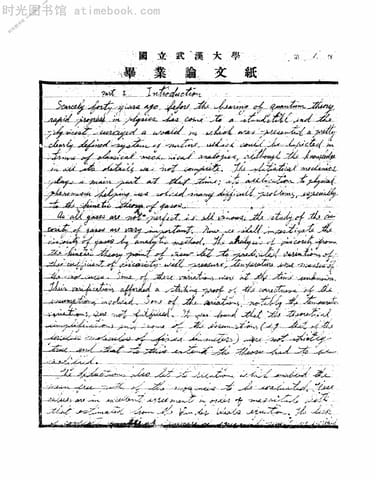 时光图书馆 atimebook.com
國立武漢大學
第 1 頁
畢業論文紙
Part I Introduction
Scarcely forty years ago, before the bearing of quantum theory,
rapid progress in physics has come to a standstill and the
physicist surveyed a world in which was presented a pretty
clearly defined system of matter, which could be depicted in
terms of classical mechanical analogies, although the knowledge
in all its details was not complete. The statistical mechanics
plays a main part at that time; its application to physical
phenomena helping us solved many difficult problems, especially
to the kinetic theory of gases.
As all gases are not perfect i.e. all viscous, the study of the
of gases are very important. Now we shall investigate the
viscosity of gases by analytic method. The analysis of viscosity from
the kinetic theory point of view led to predicted variations of
the coefficient of viscosity with pressure, temperature and mass of
Some of these variations were at the time unknown.
Their verification afforded a striking proof of the correctness of the
assumptions involved. Some of the variation, notably the temperature
variations, was not fulfilled. It was found that the theoretical
simplifications in some of the assumption (e.g. that of the
molecules of fixed diameters) are not strictly
true and that to this extend the theory had to be
modified.
The deductions also let to equations which enabled the
mean free path of the molecules to be evaluated. These
values are in excellent agreement in order of magnitude with
that estimated from the Van der Waals equation. The lack
of